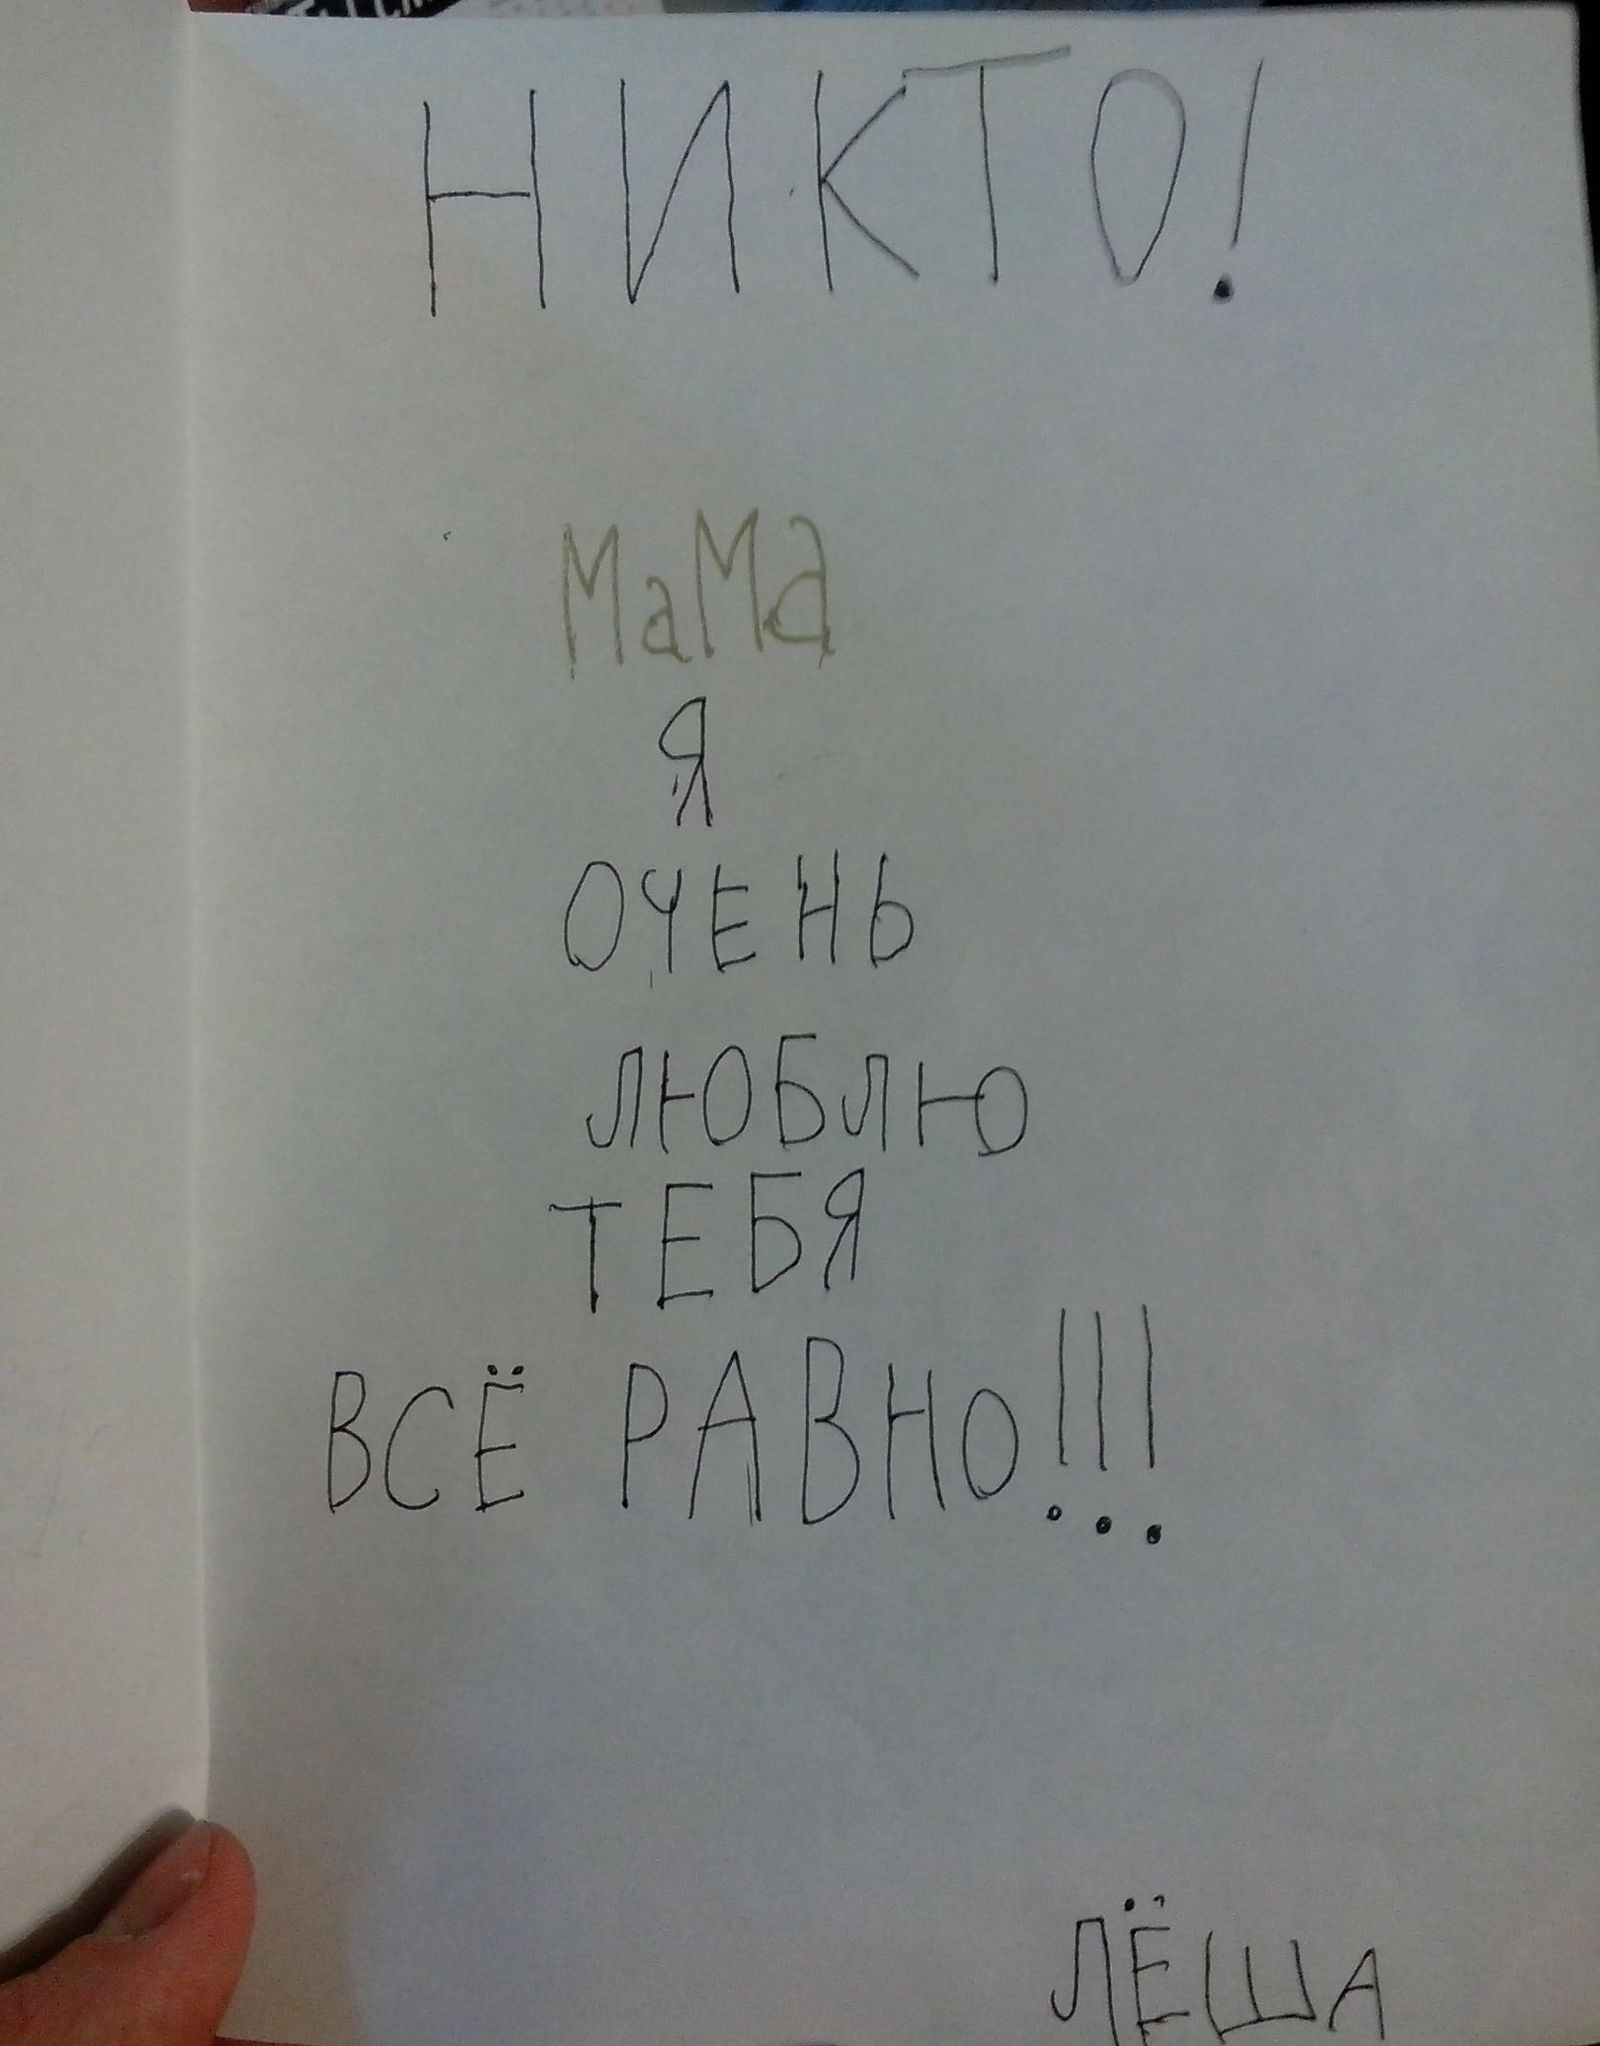 НИКТО!
МаМа
Я
ОЧЕНЬ
ЛЮБЛЮ
ТЕБЯ
ВСЁ РАВНО!!!
ЛЁША